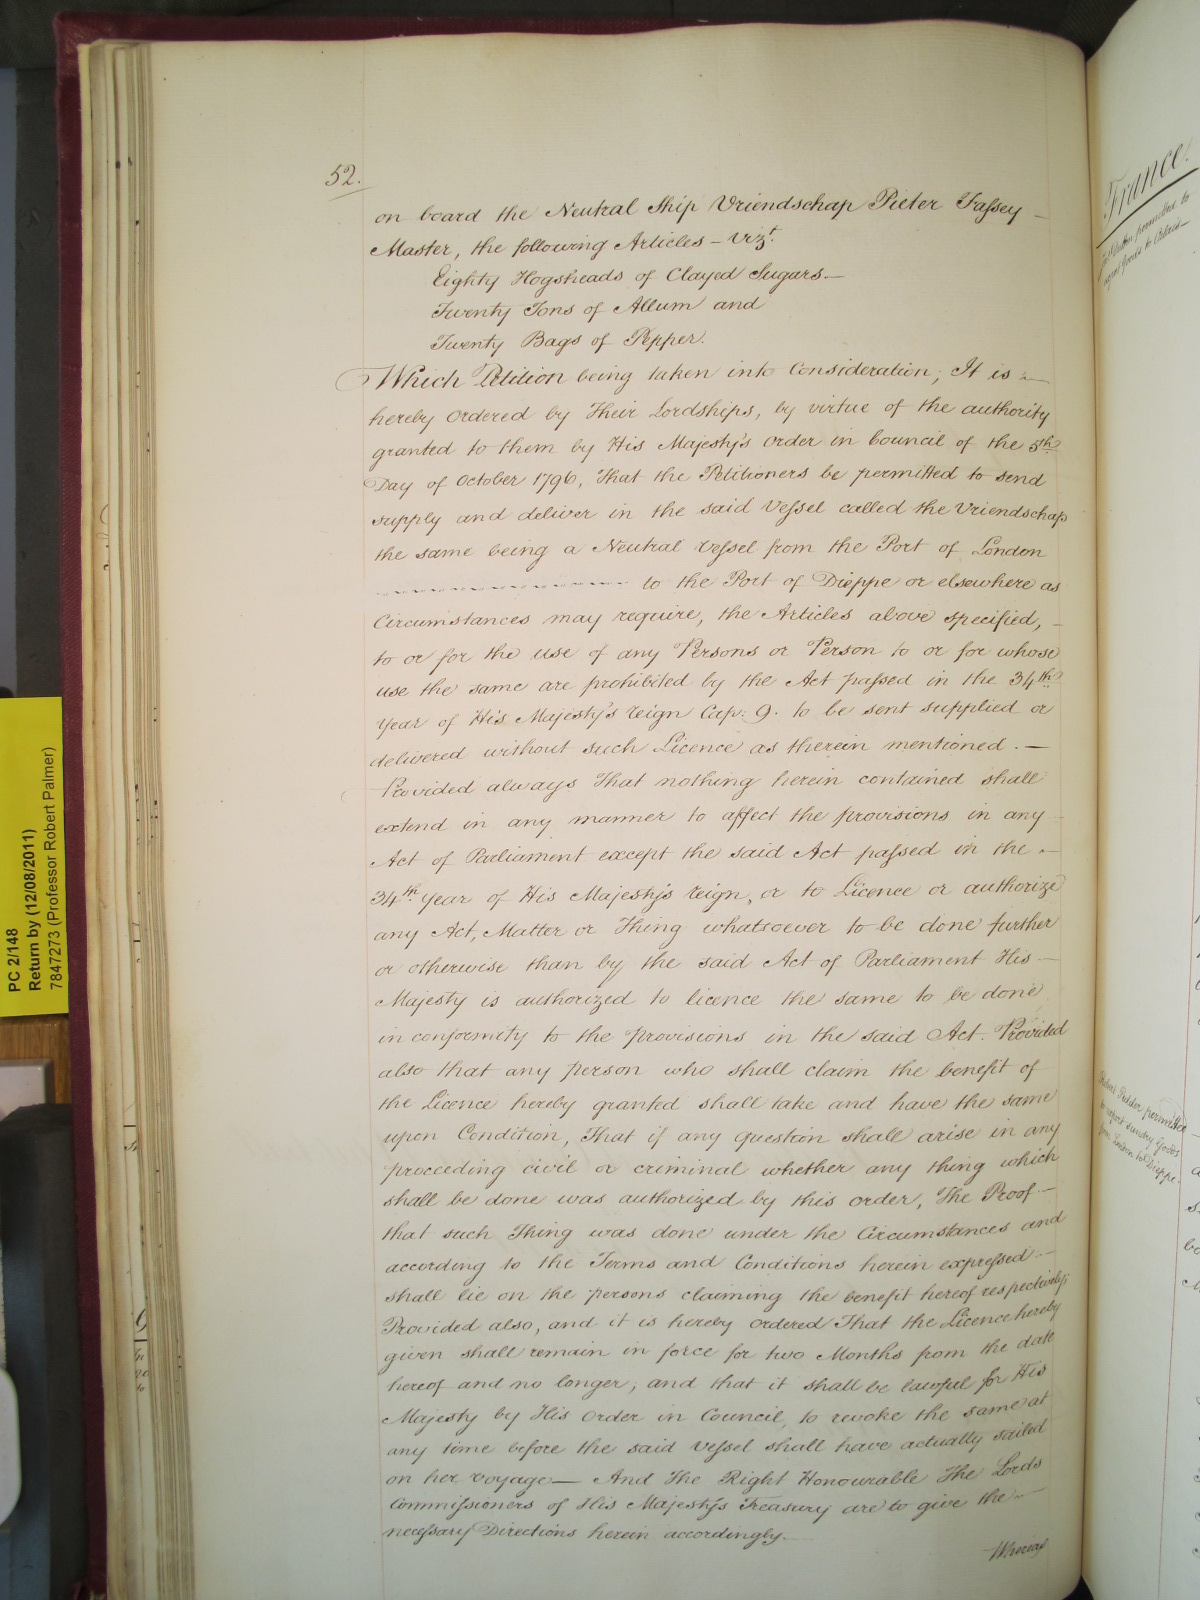 52.
on board the Neutral Ship Vriendschap Pieter Tassey –
Master, the following Articles – Vizt.
Eighty Hogsheads of Clayed Sugars. –
Twenty Tons of Allum and
Twenty Bags of Pepper.
Which Petition being taken into Consideration; It is –
hereby Ordered by Their Lordships, by virtue of the authority
granted to them by His Majesty's Order in Council of the 5th
Day of October 1796, That the Petitioners be permitted to send
supply and deliver in the said Vessel called the Vriendschap
the same being a Neutral Vessel from the Port of London
to the Port of Dieppe or elsewhere as
Circumstances may require, the Articles above specified, –
to or for the use of any Persons or Person to or for whose
use the same are prohibited by the Act passed in the 34th
Year of His Majesty's reign Cap: 9. to be sent supplied or
delivered without such Licence as therein mentioned. –
Provided always That nothing herein contained shall
extend in any manner to affect the provisions in any
Act of Parliament except the said Act passed in the –
34th Year of His Majesty's reign, or to Licence or authorize
any Act, Matter or Thing whatsoever to be done further
or otherwise than by the said Act of Parliament His –
Majesty is authorized to licence the same to be done
in conformity to the provisions in the said Act. Provided
also that any person who shall claim the benefit of
the Licence hereby granted shall take and have the same
upon Condition, That if any Question shall arise in any
proceeding civil or criminal whether any thing which
shall be done was authorized by this order, The Proof –
that such Thing was done under the Circumstances and
according to the Terms and Conditions herein expressed –
shall lie on the persons claiming the benefit hereof respectively
Provided also, and it is hereby ordered That the Licence hereby
given shall remain in force for two Months from the date
hereof and no longer; and that it shall be lawful for His
Majesty by His Order in Council, to revoke the same at
any time before the said Vessel shall have actually sailed
on her voyage – And The Right Honourable The Lords
Commissioners of His Majesty's Treasury are to give the –
necessary Directions herein accordingly.
Whereas
France.
permitted to
export goods to Calais –
permitted
to export sundry Goods
from London to Dieppe.
PC 2/148
Return by (12/08/2011)
7847273 (Professor Robert Palmer)